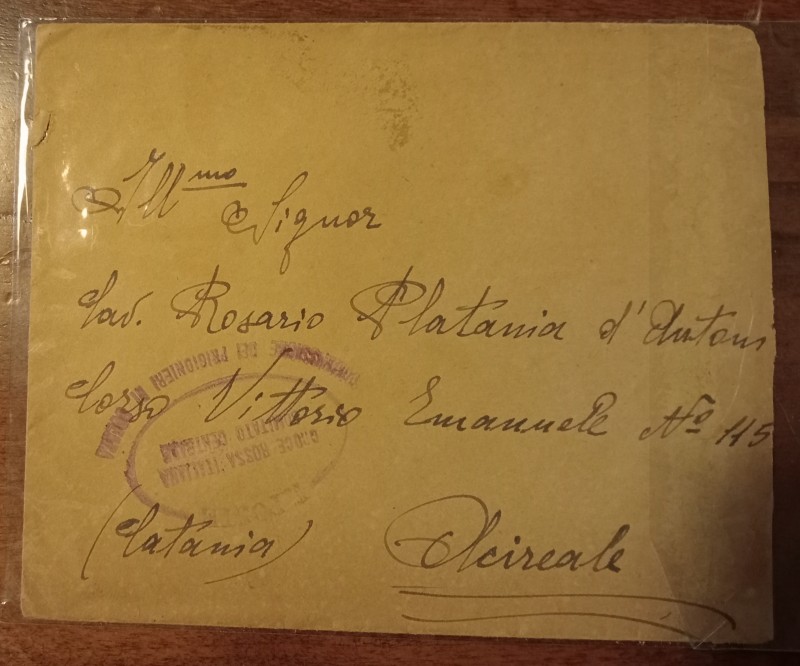 Ill.mo Signor
Cav. Rosario Platania d'Antoni
Corso Vittorio Emanuele No 115
(Catania) Acireale
COMMISSIONE DEI PRIGIONIERI DI GUERRA
CROCE ROSSA ITALIANA
COMITATO CENTRALE